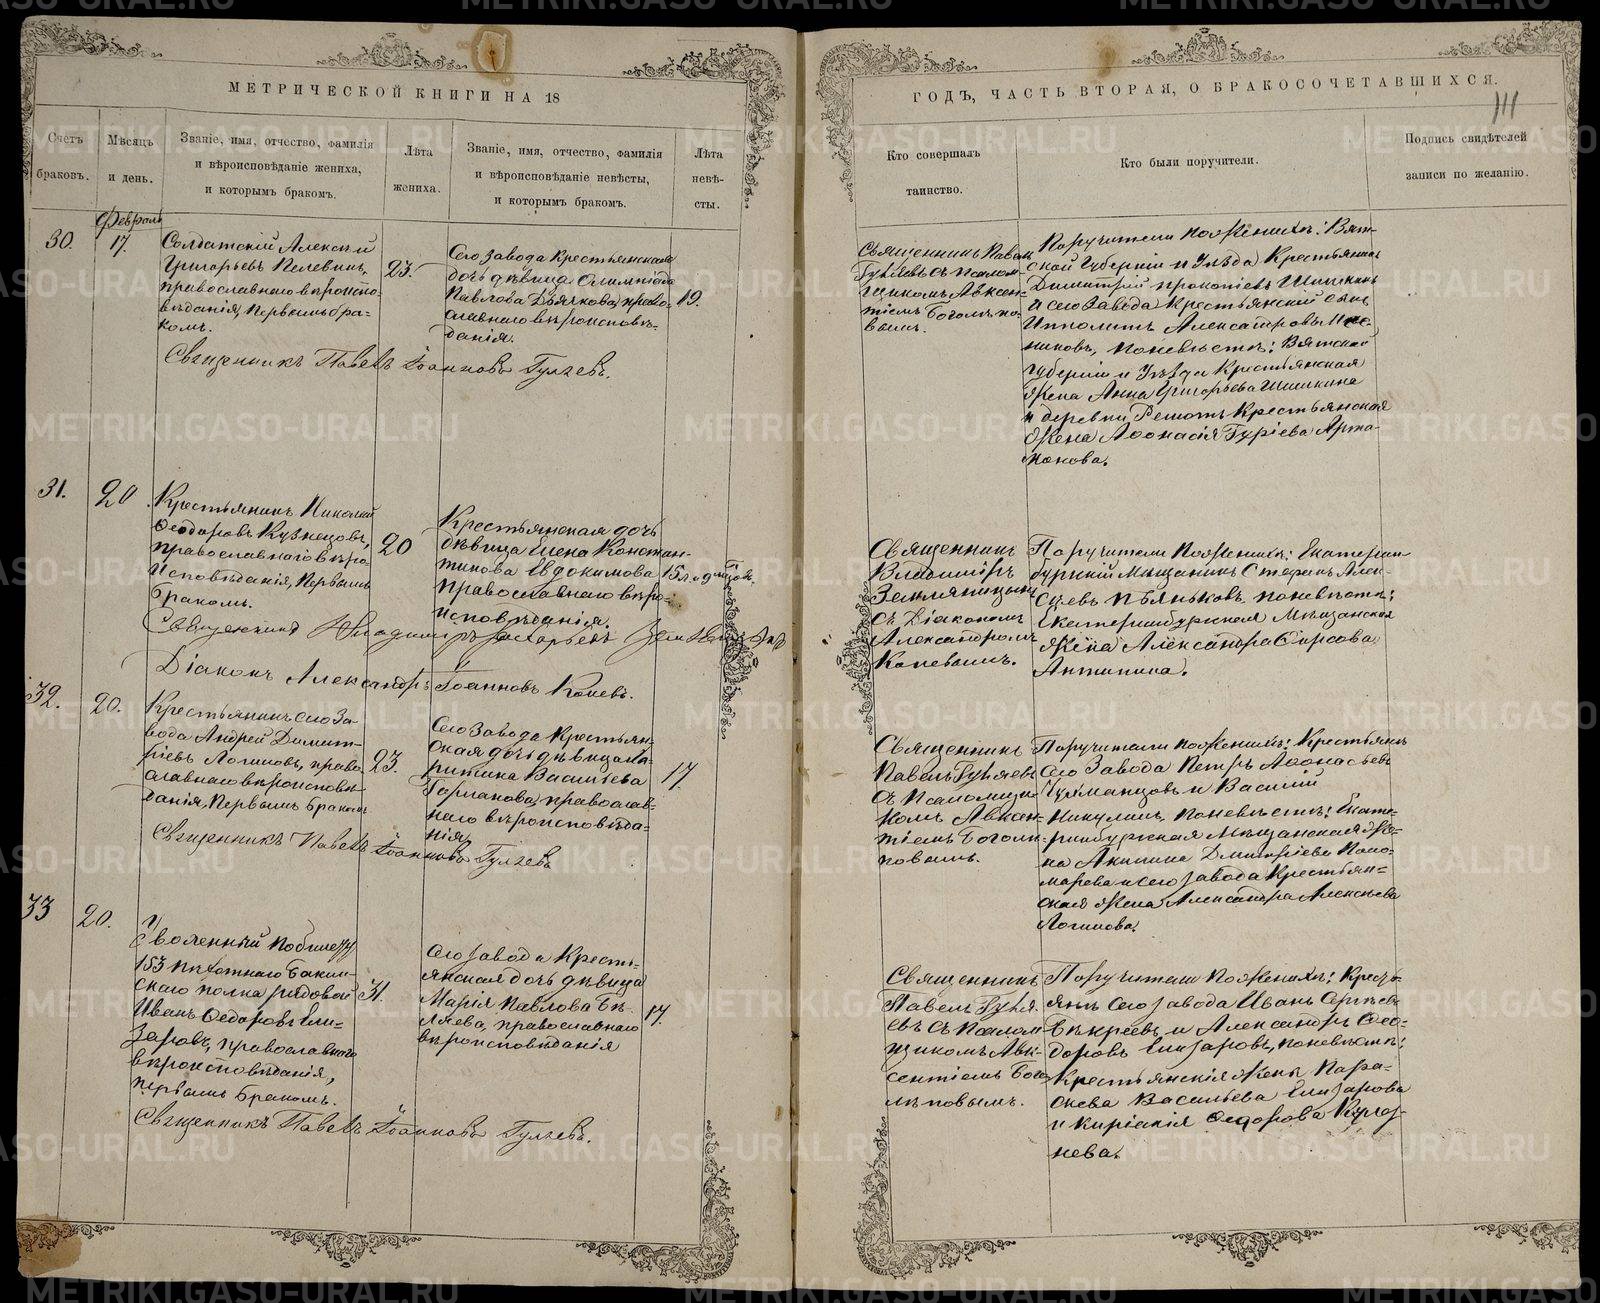 МЕТРИЧЕСКОЙ КНИГИ НА 18
Счетъ браковъ.
Мѣсяцъ и день.
Званіе, имя, отчество, фамилія
и вѣроисповѣданіе жениха,
и которымъ бракомъ.
Лѣта жениха.
Званіе, имя, отчество, фамилія
и вѣроисповѣданіе невѣсты,
и которымъ бракомъ.
Лѣта невѣ-
сты.
Февраль
30.
17.
Солдатскій Алексѣй
Григорьевъ Пелевинъ,
православнаго вѣроиспо-
вѣданія, первымъ бра-
комъ.
23.
Сего завода крестьянская
дочь дѣвица Олимпіада
Павлова Дьячкова, право-
славнаго вѣроисповѣ-
данія.
19.
Священникъ Павелъ Іоанновъ Гуляевъ.
31.
20
Крестьянинъ Николай
Феодоровъ Кузнецовъ,
православнаго вѣро
исповѣданія, первымъ
бракомъ.
20
Крестьянская дочь
дѣвица Елена Констан-
тинова Евдокимова
православнаго вѣро-
исповѣданія.
Священникъ Владиміръ Захарьевъ
Діаконъ Александръ Іоанновъ Коневъ.
32.
20.
Крестьянинъ сего за-
вода Андрей Димит-
ріевъ Логиновъ, право
славнаго вѣроисповѣ-
данія, первымъ бракомъ
23.
Сего завода крестьян-
ская дочь дѣвица Ма-
Васильева
православ-
наго вѣроисповѣда-
нія.
17.
Священникъ Павелъ Іоанновъ Гуляевъ
33
20.
Уволенный по билету
153 пѣхотнаго Бакин-
скаго полка рядовой
Иванъ Федоровъ Ели-
заровъ, православнаго
вѣроисповѣданія,
первымъ бракомъ.
31.
Сего завода кресть-
янская дочь дѣвица
Марія Павлова Бѣ-
ляева, православнаго
вѣроисповѣданія
17.
Священникъ Павелъ Іоанновъ Гуляевъ.
ГОДЪ, ЧАСТЬ ВТОРАЯ, О БРАКОСОЧЕТАВШИХСЯ.
111
Кто совершалъ
таинство.
Кто были поручители.
Подпись свидѣтелей
записи по желанію.
Священникъ Павелъ
Гуляевъ съ псалом-
щикомъ Авксен-
тіемъ Боголѣпо-
вымъ.
Поручители по женихѣ: Вят-
ской губерніи и уѣзда крестьянинъ
Димитрій Прокопіевъ Шишкинъ
и сего завода крестьянскій сынъ
Ипполитъ Александровъ
никовъ, по невѣстѣ: Вятской
губерніи и уѣзда крестьянская
жена Анна Григорьева Шишкина
и деревни Решотъ крестьянская
жена Афонасія Гуріева Арта-
монова.
Священникъ
Владиміръ
Земляницынъ
съ діакономъ
Александромъ
Коневымъ.
Поручители по женихѣ: Екатерин-
бургскій мѣщанинъ Стефанъ Алек-
сѣевъ Пьянковъ, по невѣстѣ:
Екатеринбургская мѣщанская
жена Александра Фирсова
Антипина.
Священникъ
Павелъ Гуляевъ
съ псаломщи-
комъ Авксен-
тіемъ Боголѣ-
повымъ.
Поручители по женихѣ: крестьянъ
сего завода Петръ Афонасьевъ
и Василій
Никулинъ, по невѣстѣ: Екате-
ринбургская мѣщанская же-
на Акилина Дмитріева Поно-
марева и сего завода крестьян-
ская жена Александра Алексѣева
Логинова.
Священникъ
Павелъ Гуля-
евъ съ псалом-
щикомъ Авк-
сентіемъ Бого-
лѣповымъ.
Поручители по женихѣ: кресть-
янъ сего завода Иванъ Сергѣевъ
и Александръ Фео-
доровъ Елизаровъ, по невѣстѣ:
крестьянскія жены Пара-
скева Васильева Елизарова
и Киріакія Федорова
METRIKI.GASO-URAL.RU